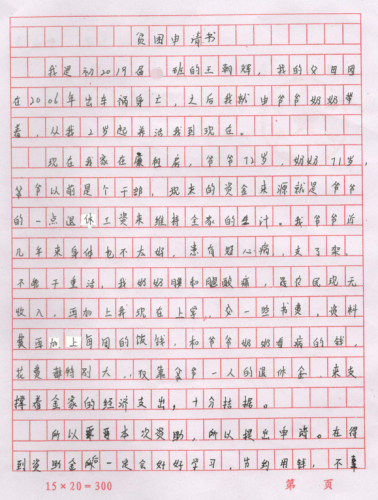 贫困申请书
我是初2019届 班的王朝辉，我的父母因
在2006年出车祸身亡，之后我就由爷爷奶奶带
着，从我2岁起养活我到现在。
现在我家在廉租房，爷爷72岁，奶奶71岁，
爷爷以前是个干部，现在的资金来源就是爷爷
的一点退休工资来维持全家的生计。我爷爷近
几年来身体也不太好，患有冠心病，支了架。
不能干重活，我奶奶腰和腿酸痛，是农民现无
收入，再加上我现在上学，交一些书费，资料
费再加上每周的饭钱，和爷爷奶奶看病的钱，
花费特别大，仅靠爷爷一人的退休金，来支
撑着全家的经济支出，十分拮据。
所以 本次资助，所以提出申请。在得
到资助金后一定会好好学习，节约用钱，不辜
15×20=300 第 页